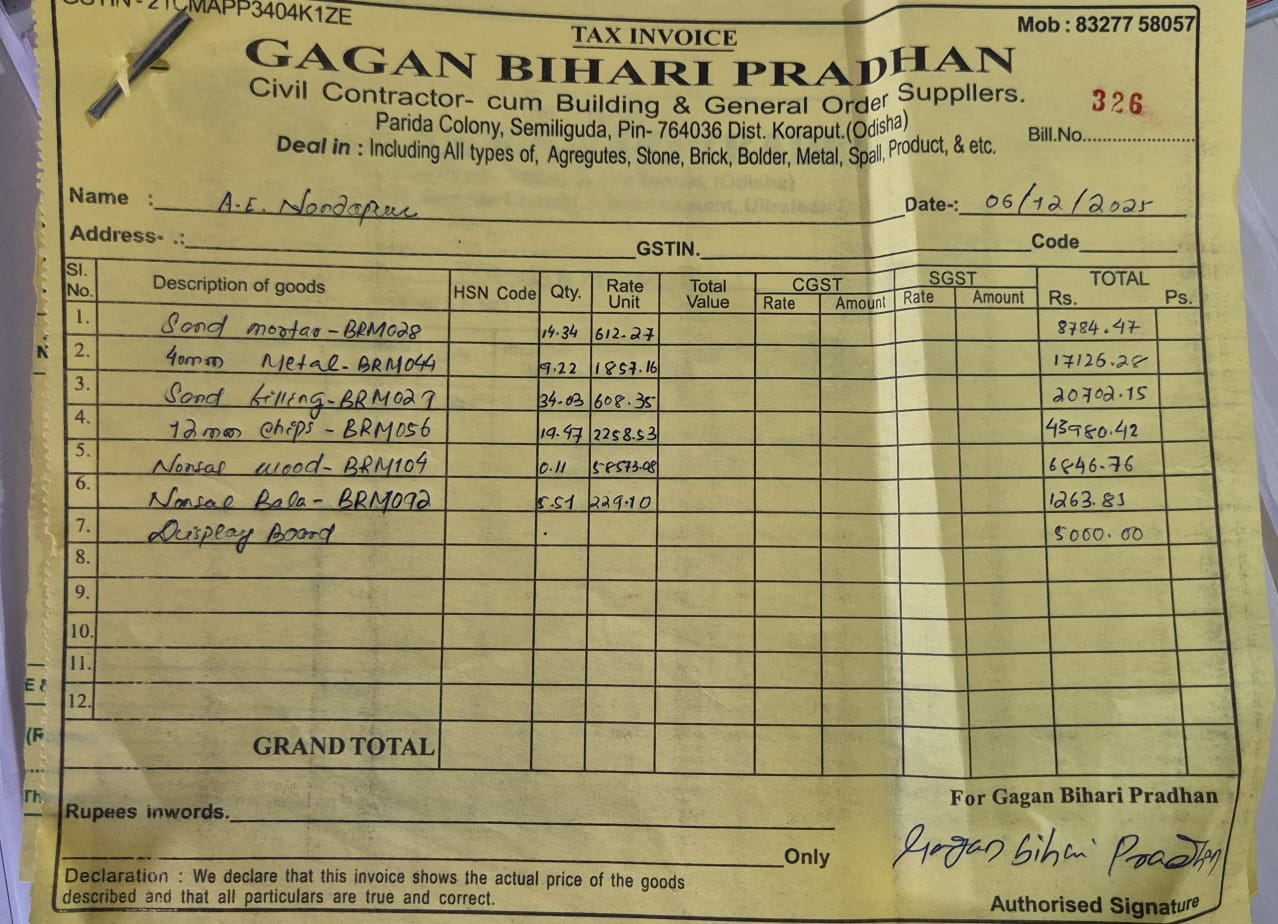 GSTIN - 21CMAPP3404K1ZE
TAX INVOICE
Mob : 83277 58057
GAGAN BIHARI PRADHAN
Civil Contractor- cum Building & General Order Suppllers.
326
Parida Colony, Semiliguda, Pin- 764036 Dist. Koraput.(Odisha)
Bill.No.
Deal in : Including All types of, Agregutes, Stone, Brick, Bolder, Metal, Spall, Product, & etc.
Name : A.E. Nandapur Date-: 06/12/2025
Address- .: GSTIN. Code
Sl. No. Description of goods HSN Code Qty. Rate Unit Total Value CGST Rate Amount SGST Rate Amount TOTAL Rs. Ps.
1. Sand mortar - BRM028 14.34 612.27 8784.47
2. 40mm Metal - BRM044 9.22 1857.16 17126.28
3. Sand filling - BRM029 34.03 608.35 20702.15
4. 12mm chips - BRM056 19.47 2258.53 43980.42
5. Nonsal wood - BRM104 0.11 58573.08 6846.76
6. Nonsal Bala - BRM092 5.51 229.10 1263.81
7. Duisplay Board 5000.00
8.
9.
10.
11.
12.
GRAND TOTAL
For Gagan Bihari Pradhan
Rupees inwords.
Gagan bihari Pradhan
Only
Declaration : We declare that this invoice shows the actual price of the goods
described and that all particulars are true and correct.
Authorised Signature